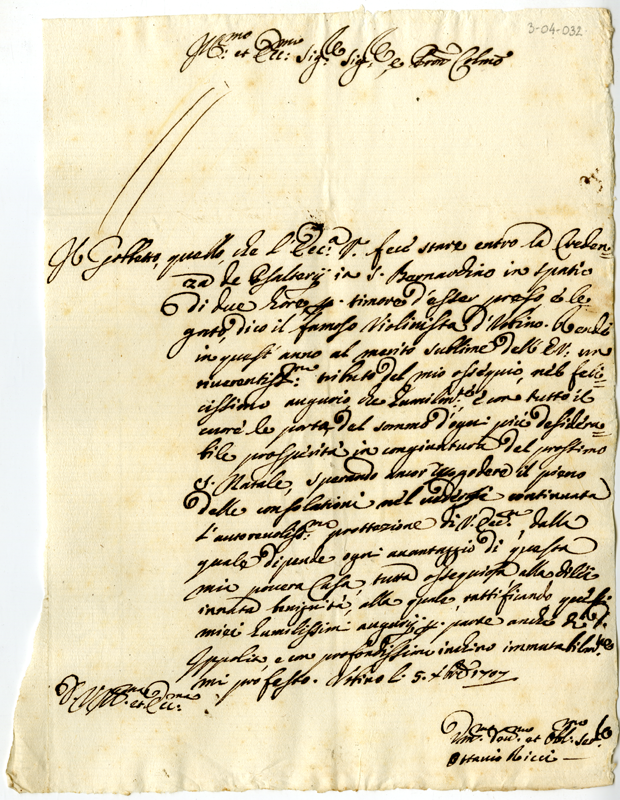 3-04-032
Ill:mo et Ecc:mo Sig:re Sig:re e Pron Colmo
Il Gobbetto, quello, che l'Ecc.a V. fece stare entro la Creden=
za de Psalterij in S. Bernardino in spatio
di due hore p. timore d'esser preso, e le
gato, dico il famoso Violinista d'Urbino. Rende
in quest'anno al merito sublime dell'E.V. un
riverentiss.mo tributo del mio ossequio, nel feli=
cissimo augurio che humilm.te, e con tutto il
cuore le porta del sommo d'ogni più desidera=
bile prosperità in congiuntura del prossimo
S. Natale, sperando ancor io godere il pieno
delle consolationi nel continuata
l'autorevoliss.ma prottezione di V. Ecc.a dalla
quale dipende ogni avantaggio di questa
mia povera Casa, tutta ossequiosa alla di lei
innata benignità, alla quale, rattificando questi
miei humilissimi augurij p. parte anche di
Ippolia, e con profondissimo inchino immutabilm.te
mi professo. Urbino li 5. Xbre 1707
D. V. Ill:ma et Ecc:ma
Um:mo Dev:mo et Obl:mo Ser:re
Ottavio Ricci